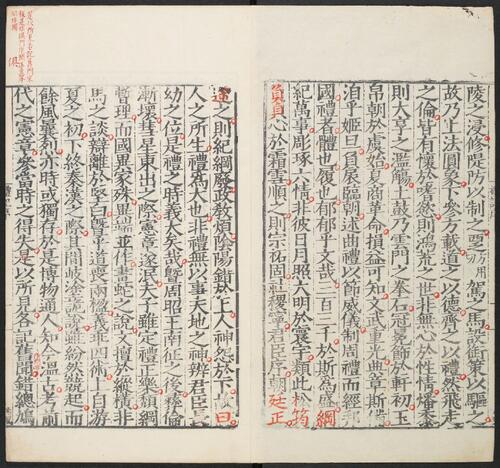 陵之浸修隄防以制之覂方用駕之馬設銜策以驅之
故乃上法圓象下參方載道之以德齊之以禮然飛走
之倫皆有懷於嗜慾則鴻荒之世非無心於性情燔黍
則大亨之濫觴土鼓乃雲門之拳石冠冕飾於軒初玉
帛朝於虞始夏商革命損益可知文武重光典章斯備
洎乎姬旦負扆臨朝述曲禮以節威儀制周禮而經邦
國禮者體也履也郁郁乎文哉三百三千於斯為盛綱
紀萬事彫琢六情非彼日月照六明於寰宇類此松筠
負貞心於霜雪順之則宗祏固社稷寧君臣序朝廷正
逆之則紀綱廢政教煩陰陽錯於上人神怨於下故曰
人之所生禮為大也非禮無以事天地之神辯君臣長
幼之位是禮之時義大矣哉暨周昭王南征之後彝倫
漸壞彗星東出之際憲章遂泯夫子雖定禮正樂頹綱
暫理而國異家殊異端並作畫蛇之說文擅於縱橫非
馬之談辯離於堅白暨乎道喪兩楹義乖四術上自游
夏之初下終秦漢之際其間岐塗詭說雖紛然競起而
餘風曩烈亦時或獨存於是博通人知今溫古考前
代之憲章參當時之得失是以所見各記舊聞錯總鳩